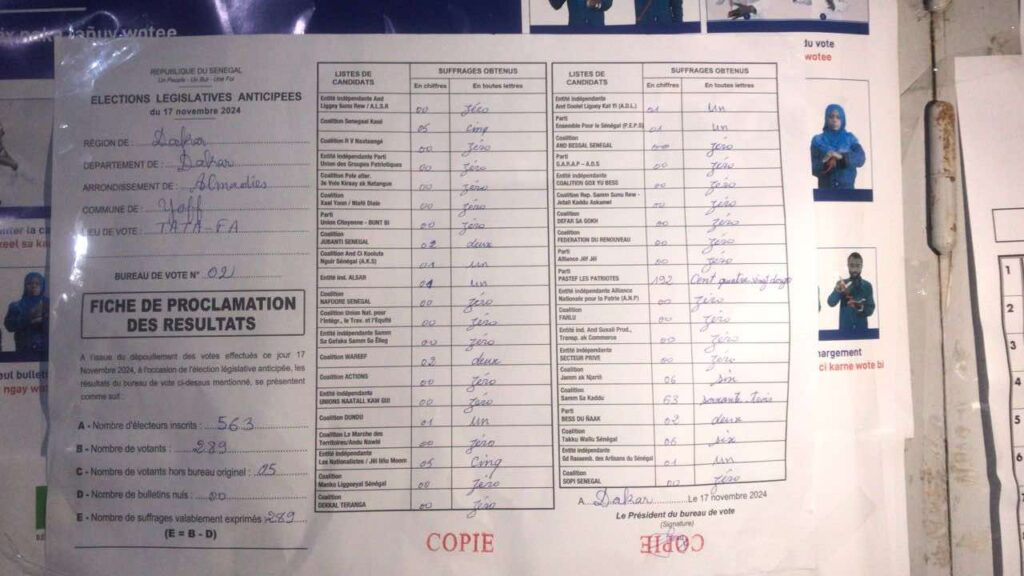 añuy wotee
REPUBLIQUE DU SENEGAL
Un Peuple - Un But - Une Foi
ELECTIONS LEGISLATIVES ANTICIPEES
du 17 novembre 2024
RÉGION DE : Dakar
DEPARTEMENT DE : Dakar
ARRONDISSEMENT DE : Almadies
COMMUNE DE : Yoff
LIEU DE VOTE : TATA-FA
BUREAU DE VOTE N° 02
FICHE DE PROCLAMATION
DES RESULTATS
A l'issue du dépouillement des votes effectués ce jour 17
Novembre 2024, à l'occasion de l'élection législative anticipée, les
résultats du bureau de vote ci-dessus mentionné, se présentent
comme suit :
A - Nombre d'électeurs inscrits : 563
B - Nombre de votants : 289
C - Nombre de votants hors bureau originel : 05
D - Nombre de bulletins nuls : 00
E - Nombre de suffrages valablement exprimés : 289
(E = B - D)
LISTES DE CANDIDATS SUFFRAGES OBTENUS
En chiffres En toutes lettres
Entité Indépendante And
Liggey Sunu Rew / A.L.S.R 00 zéro
Coalition Senegaal Kesé 05 cinq
Coalition R V Naataangé 00 zéro
Entité indépendante Parti
Union des Groupes Patriotiques 00 zéro
Coalition Pole alter.
3e Voie Kiraay ak Natangue 00 zéro
Coalition
Xaal Yoon 00 zéro
Parti
Union Citoyenne - BUNT BI 00 zéro
Coalition
JUBANTI SENEGAL 02 deux
Coalition And Ci Koolute
Nguir Sénégal (A.K.S) 01 un
Entité Ind. ALSAR 01 un
Coalition
NAFOORE SENEGAL 00 zéro
Coalition Union Nat. pour
l'Intégr., le Trav. et l'Equité 00 zéro
Entité indépendante Samm
Sa Gafaka Samm Sa Ëlleg 00 zéro
Coalition WAREEF 02 deux
Coalition ACTIONS 00 zéro
Entité indépendante
UNIONS NAATALL KAW GUI 00 zéro
Coalition DUNDU 01 un
Coalition La Marche des
Territoires/Andu Nawlé 00 zéro
Entité indépendante
Les Nationalistes / Jël Liñu Moom 05 Cinq
Coalition
Manko Liggeeyal Sénégal 00 zéro
Coalition
DEKKAL TERANGA 00 zéro
LISTES DE CANDIDATS SUFFRAGES OBTENUS
En chiffres En toutes lettres
Entité indépendante
And Doolel Liguey Kat Yi (A.D.L) 01 un
Parti
Ensemble Pour le Sénégal (P.E.P.S) 01 un
Coalition
AND BESSAL SENEGAL zéro
Parti
S.A.R.A.P – A.D.S 00 zéro
Entité indépendante
COALITION GOX YU BESS 00 zéro
Coalition Rep. Samm Sunu Rew -
Jotali Kaddu Askanwi 00 zéro
Coalition
DEFAR SA GOKH 00 zéro
Coalition
FEDERATION DU RENOUVEAU 00 zéro
Parti
Alliance Jëf Jël 00 zéro
Parti
PASTEF LES PATRIOTES 192 Cent quatre vingt douze
Entité indépendante Alliance
Nationale pour la Patrie (A.N.P) 00 zéro
Coalition
FARLU 00 zéro
Entité ind. And Suxali Prod.,
Transp. ak Commerce 00 zéro
Entité indépendante
SECTEUR PRIVE 00 zéro
Coalition
Jamm ak Njariñ 06 six
Coalition
Samm Sa Kaddu 63 soixante trois
Parti
BESS DU ÑAAK 02 deux
Coalition
Takku Wallu Sénégal 06 six
Entité indépendante
Gd Rassemb. des Artisans du Sénégal 01 un
Coalition
SOPI SENEGAL 00 zéro
A Dakar Le 17 novembre 2024
Le Président du bureau de vote
(Signature)
COPIE
COPIE
du vote
wotee
argement
ci karne wote bi
1
2
3
4
5
6